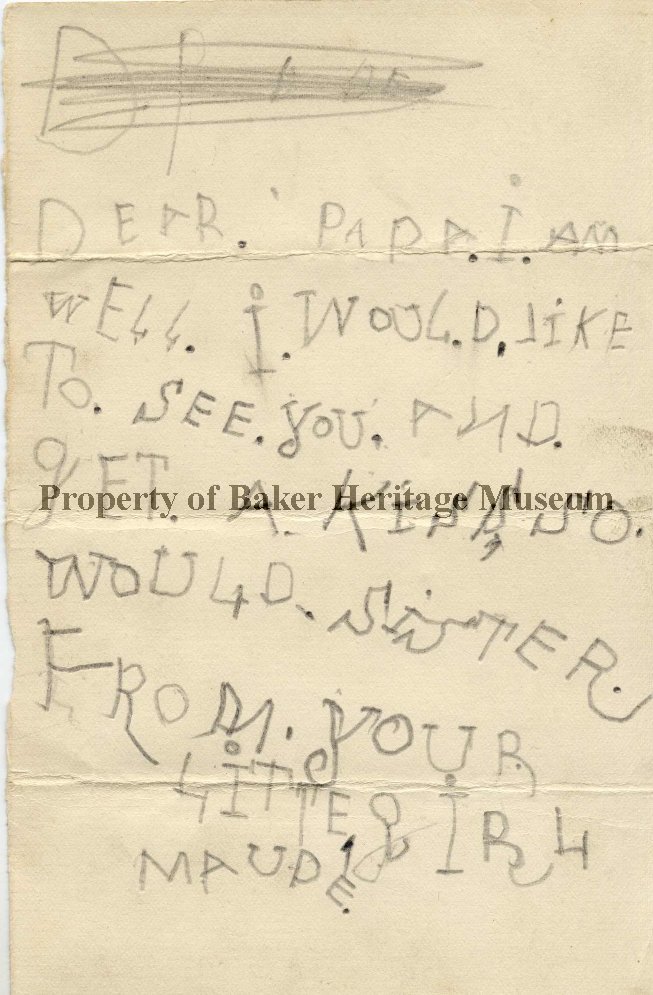 DEAR. PAPA. I. AM
WELL. I. WOULD. LIKE
TO. SEE. YOU. AND.
GET. A. KISS SO.
Property of Baker Heritage Museum
WOULD. SISTER
FROM. YOUR
LITTE GIRL
MAUDE.